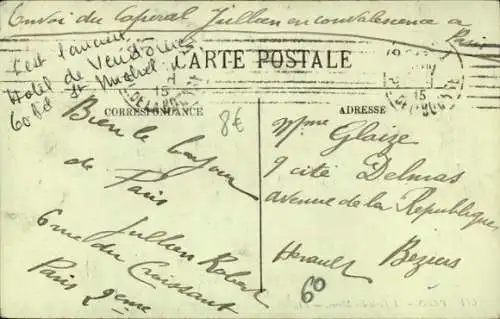 Envoi du Caporal Jullien en convalescence a
Paris
c'est l'ancien
Hotel de Vendôme
60 Bd St Michel
CARTE POSTALE
15
15
CORRESPONDANCE
ADRESSE
8€
Bien le bonjour
de Paris
Jullien Robert
6 rue du Croissant
Paris 2eme
Mme Glaize
9 cité Delmas
avenue de la Republique
Beziers
Herault
60